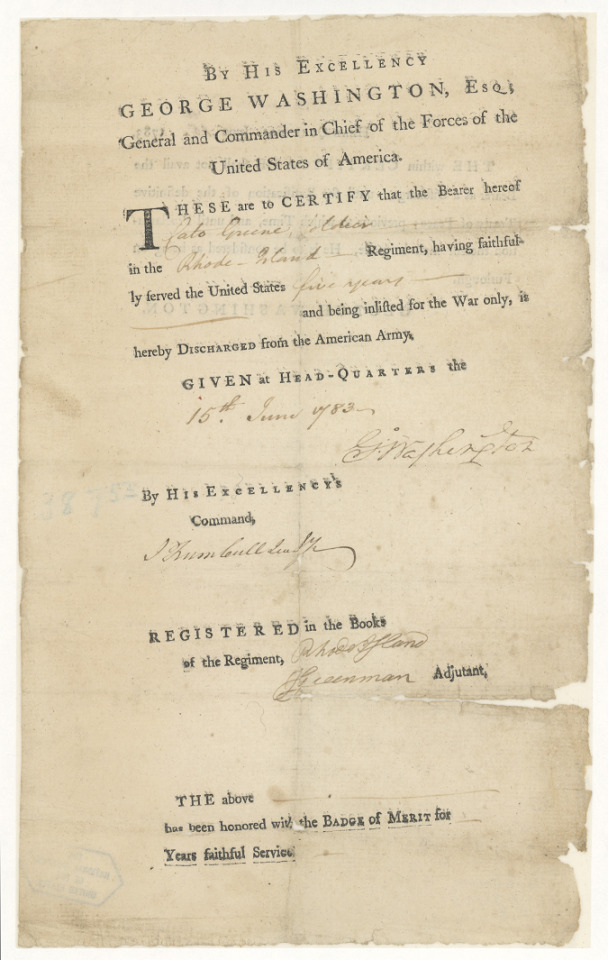 By His Excellency
GEORGE WASHINGTON, Esq;
General and Commander in Chief of the Forces of the
United States of America.
THESE are to CERTIFY that the Bearer hereof
Cato Greene, Soldier
in the Rhode-Island Regiment, having faithful-
ly ſerved the United States five years
and being inliſted for the War only, is
hereby Discharged from the American Army.
GIVEN at Head-Quarters the
15th. June 1783
Go: Washington
By His Excellency's
Command,
J Trumbull Junr
REGISTERED in the Books
of the Regiment, Rhode Island
Greenman Adjutant,
THE above
has been honored with the Badge of Merit for
Years faithful Service.